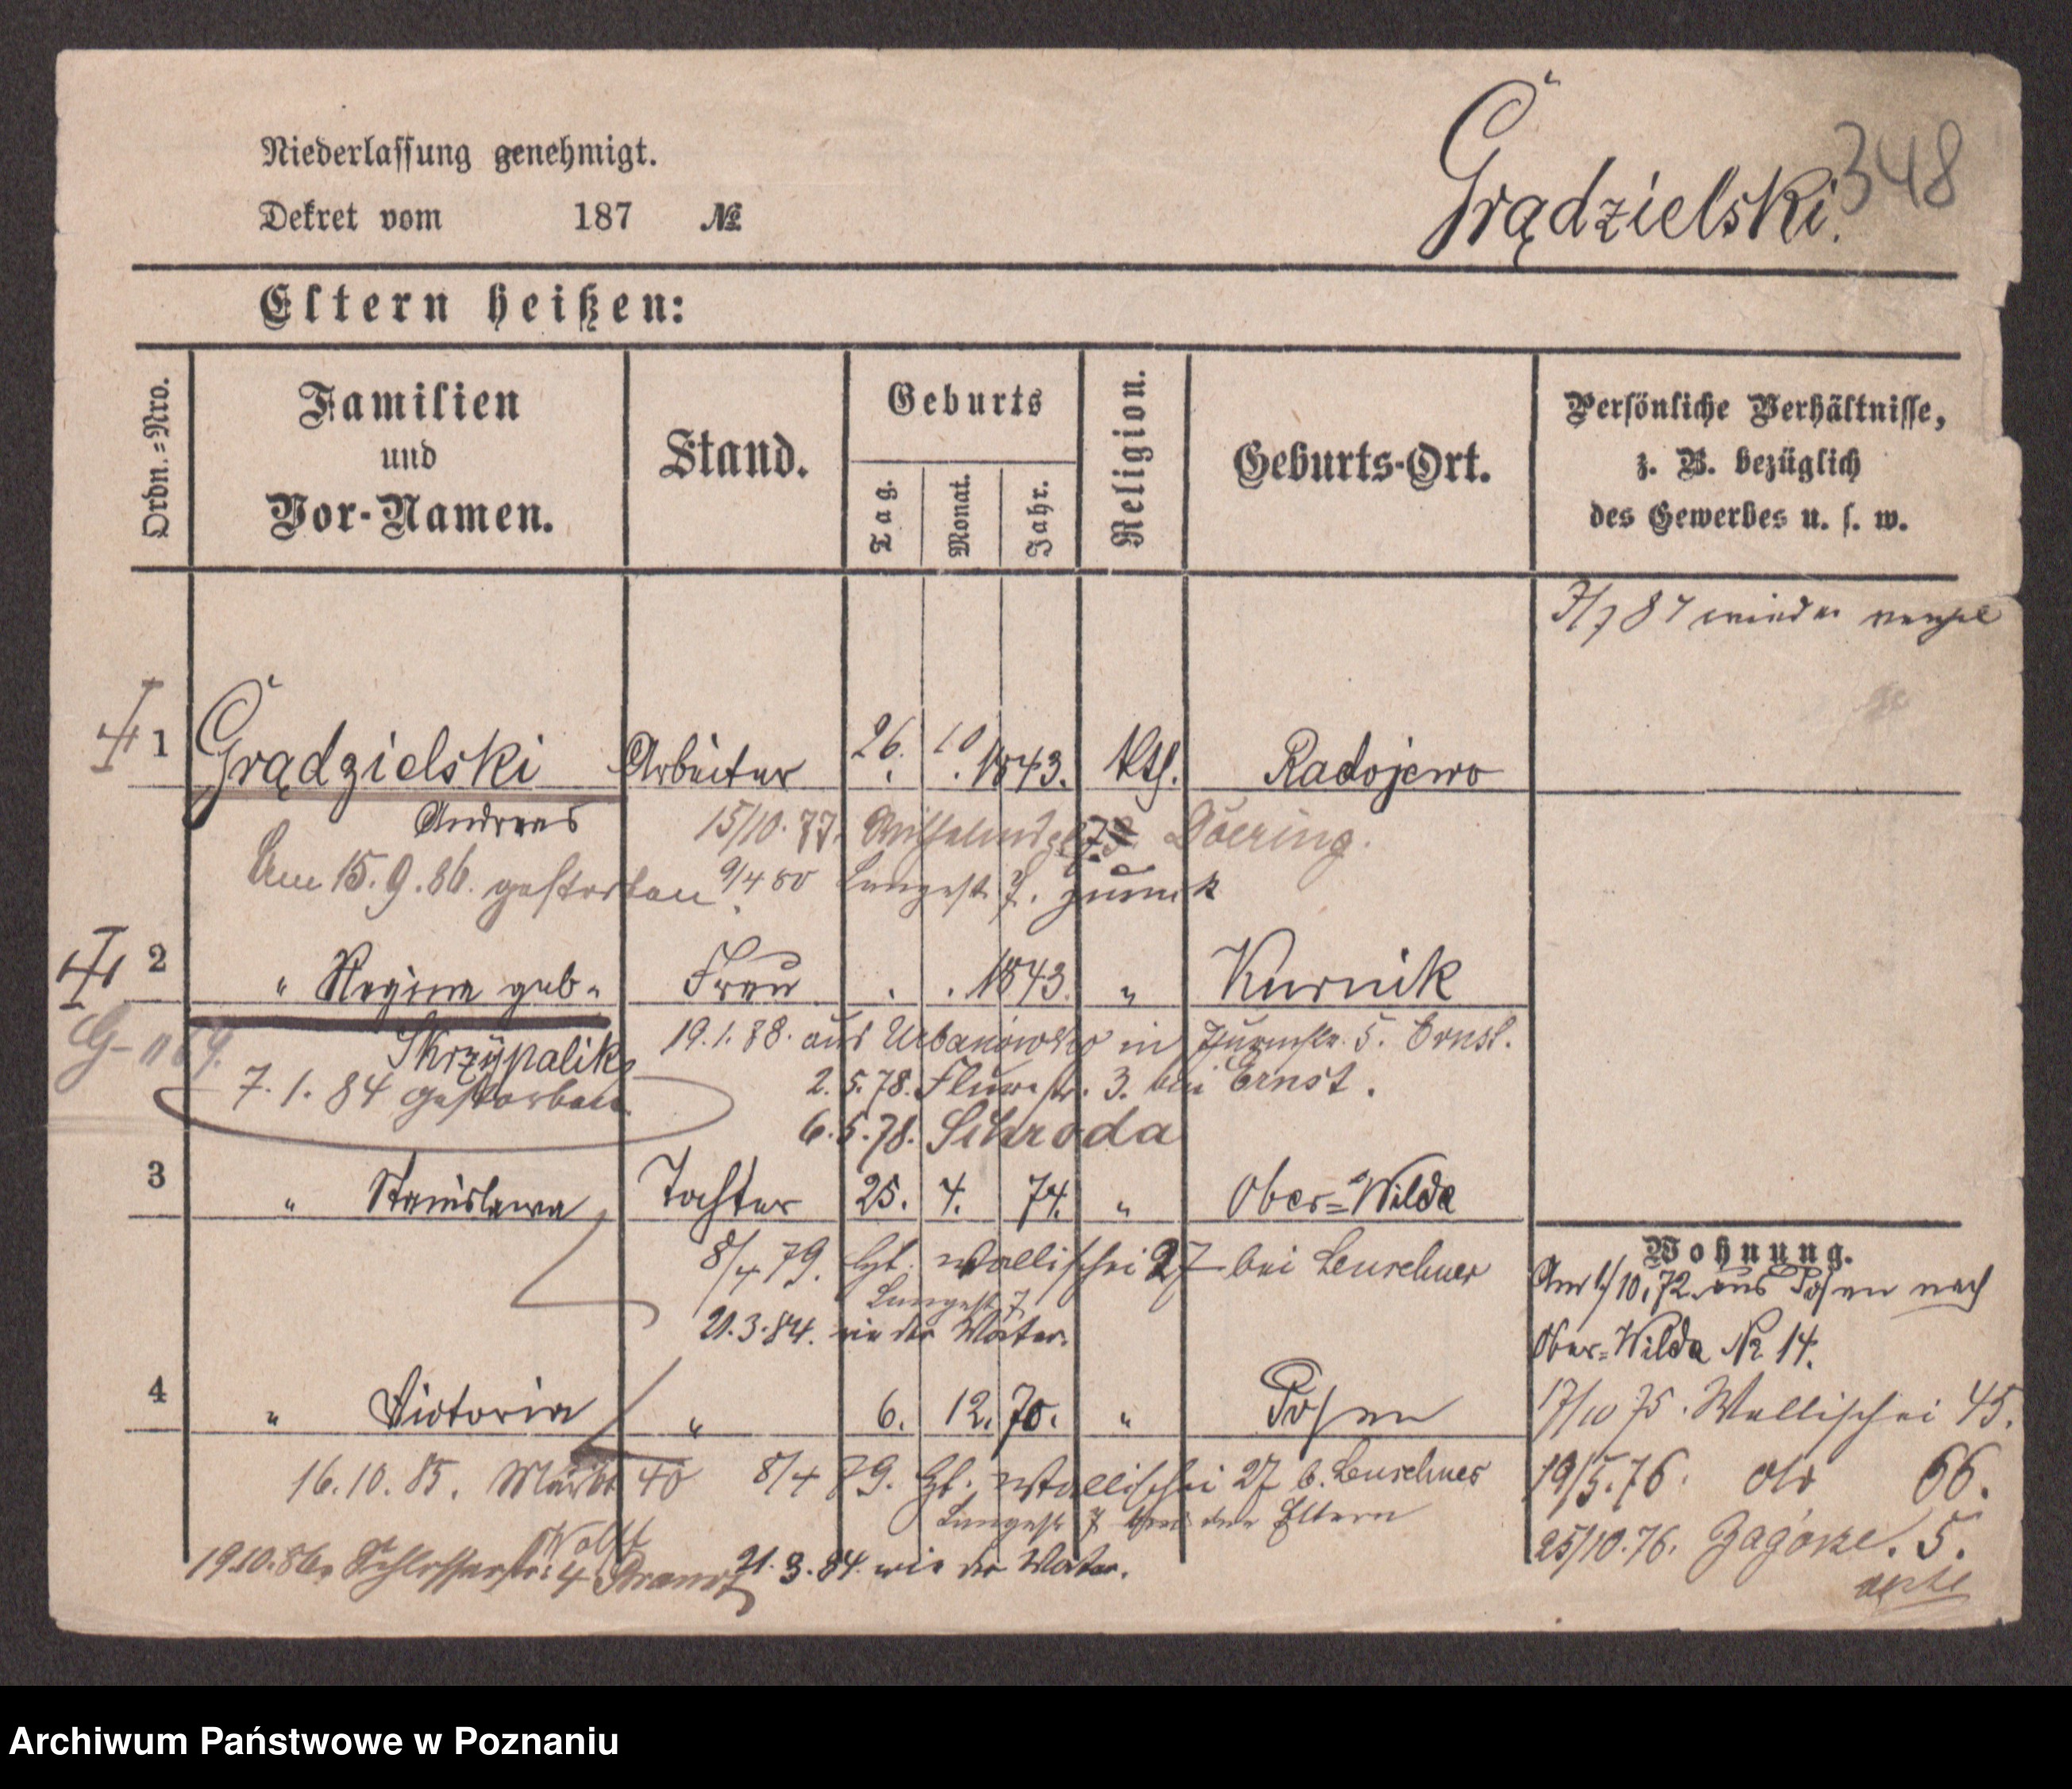 Niederlassung genehmigt.
Dekret vom 187 №
Grądzielski.
348
Eltern heißen:
Ordn.=Nro.
Familien
und
Vor-Namen.
Stand.
Geburts
Tag.
Monat.
Jahr.
Religion.
Geburts-Ort.
Persönliche Verhältnisse,
z. B. bezüglich
des Gewerbes u. s. w.
87 wieder
1 Grądzielski Arbeiter 26. 10 1843. Kth. Radojewo
Andreas 15/10. 77. Doering.
Am 15.9.86. gestorben 9/4 80 7.
2 " Regina geb. Frau 1843. " Kurnik
Skrzypalik 19.1.88. aus Urbanowko in 5. Ernst.
7.1.84 gestorben 2.5.78. 3. bei Ernst.
6.5.78. Schroda
3 " Stanislawa Tochter 25. 4. 74. " Ober=Wilda
8/4 79. Wallischei 27 bei Leuschner
7
21.3.84. wie der Vater.
4 " Victoria " 6. 12. 70. " Posen
16.10.85. Markt 40 8/4 79. Wallischei 27 b. Leuschner
7 den Eltern
19.10.86. Schlosserstr. 4 21.3.84. wie der Vater.
Wohnung.
Am 1/10.72 aus Posen nach
Ober=Wilda № 14.
17/10 75. Wallischei 45.
19/5.76. dto 66.
25/10.76. Zagórze. 5.
Archiwum Państwowe w Poznaniu